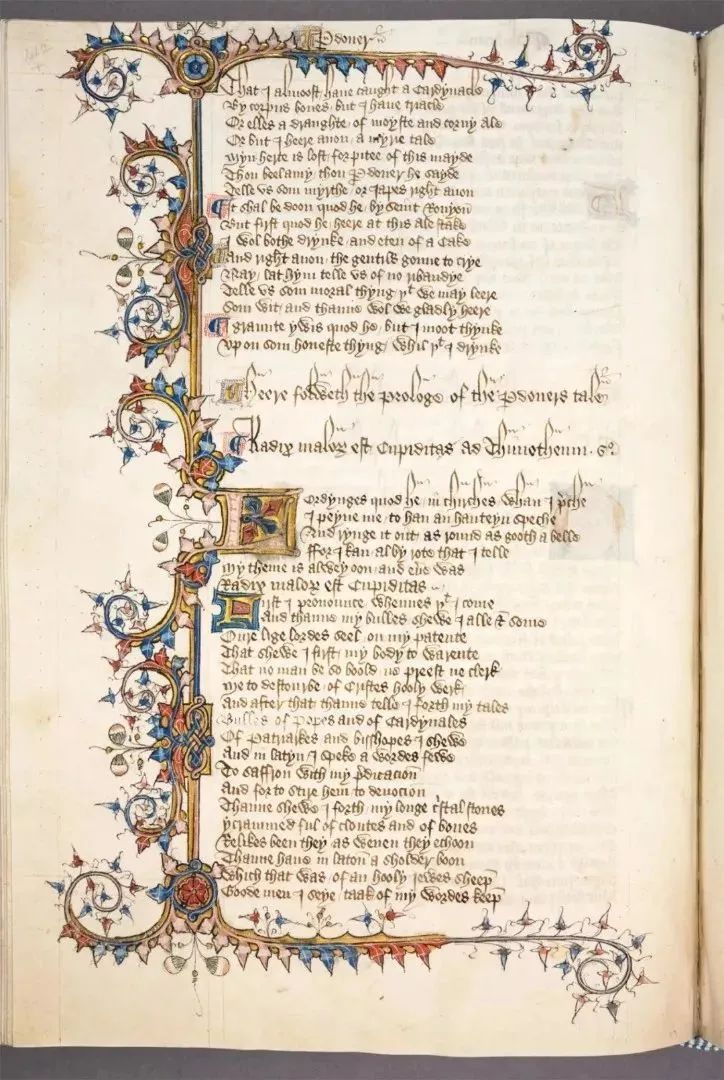 Pdoner
That I almoost haue caught a Cardynacle
By corpus bones but I haue triacle
Or elles a draughte of moyste and corny ale
Or but I heere anon a myrie tale
Myn herte is lost for pitee of this mayde
Thou beelamy thou Pdoner he sayde
Telle vs som myrthe or Japes right anon
It shal be doon quod he by Seint Ronyon
But first quod he heere at this ale stake
I wol bothe drynke and eten of a Cake
And right anon the gentils gonne to crye
Nay lat hym telle vs of no ribaudye
Telle vs som moral thyng yt we may leere
Som wit and thanne wol we gladly heere
I graunte ywis quod he but I moot thynke
Vp on som honeste thyng whil yt I drynke
Heere folweth the prologe of the Pdoners tale
Radix malorum est Cupiditas ad Thimotheum 6o
Lordynges quod he in chirches whan I pche
I peyne me to han an hauteyn speche
And rynge it out as round as gooth a belle
ffor I kan al by rote that I telle
My theme is alwey oon and euere was
Radix malorum est Cupiditas
First I pronounce whennes yt I come
And thanne my bulles shewe I alle & some
Oure lige lordes seel on my patente
That shewe I first my body to warente
That no man be so boold ne preest ne clerk
Me to destourbe of Cristes hooly werk
And after that thanne telle I forth my tales
Bulles of Popes and of Cardynales
Of Patriarkes and bisshopes I shewe
And in latyn I speke a wordes fewe
To saffron with my pdicacion
And for to stire hem to deuocion
Thanne shewe I forth my longe cstal stones
Ycrammed ful of cloutes and of bones
Relikes been they as wenen they echoon
Thanne haue I in laton a sholder boon
Which that was of an hooly Jewes sheep
Goode men I seye taak of my wordes keep